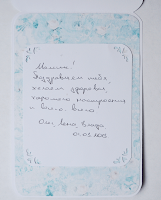 Мамочка!
Поздравляем тебя
желаем здоровья
хорошего настроения
и всего, всего
Оля, Лена, Влада
01.03.2013